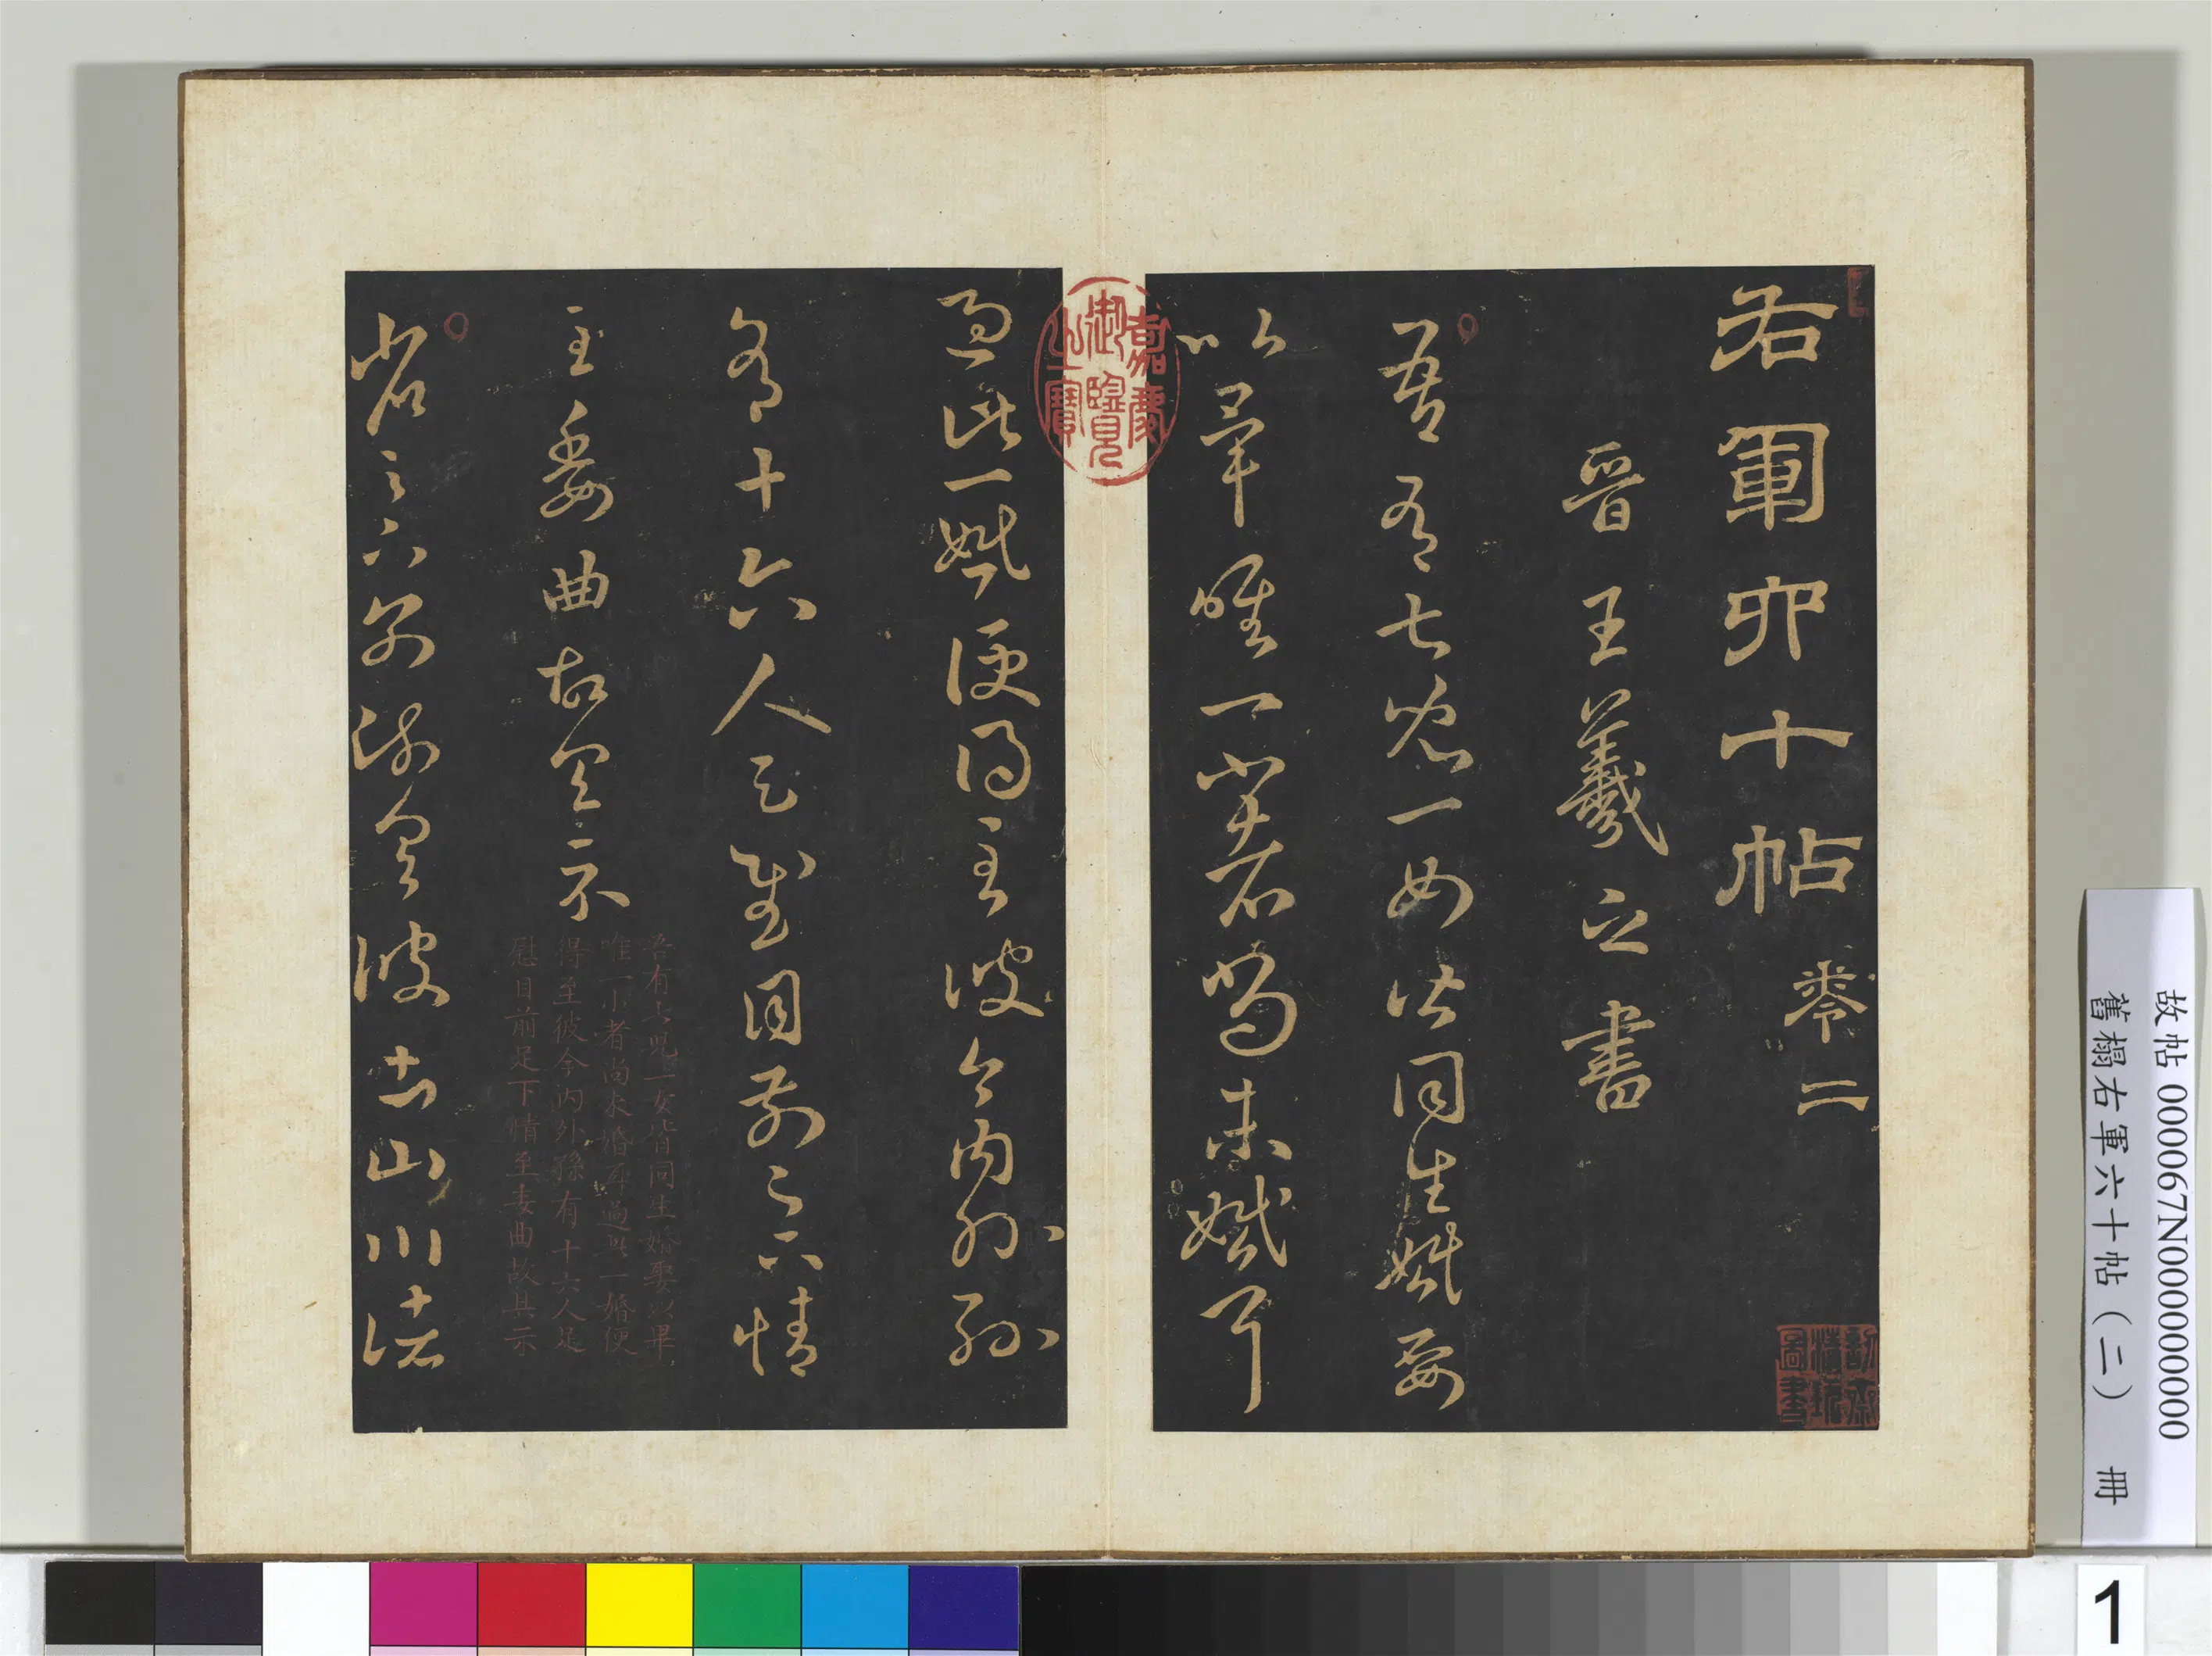 右軍六十帖 卷二
晉王羲之書
吾有七兒一女皆同生婚娶
以畢唯一小者尚未婚耳
嘉慶御覽之寶
過此一婚便得至彼今內外孫
有十六人足慰目前足下情
至委曲故具示
吾有七兒一女皆同生婚娶以畢
唯一小者尚未婚耳過此一婚便
得至彼今內外孫有十六人足
慰目前足下情至委曲故具示
省足下別疏具彼土山川諸
故帖 000067N000000000
舊榻右軍六十帖(二) 冊
1